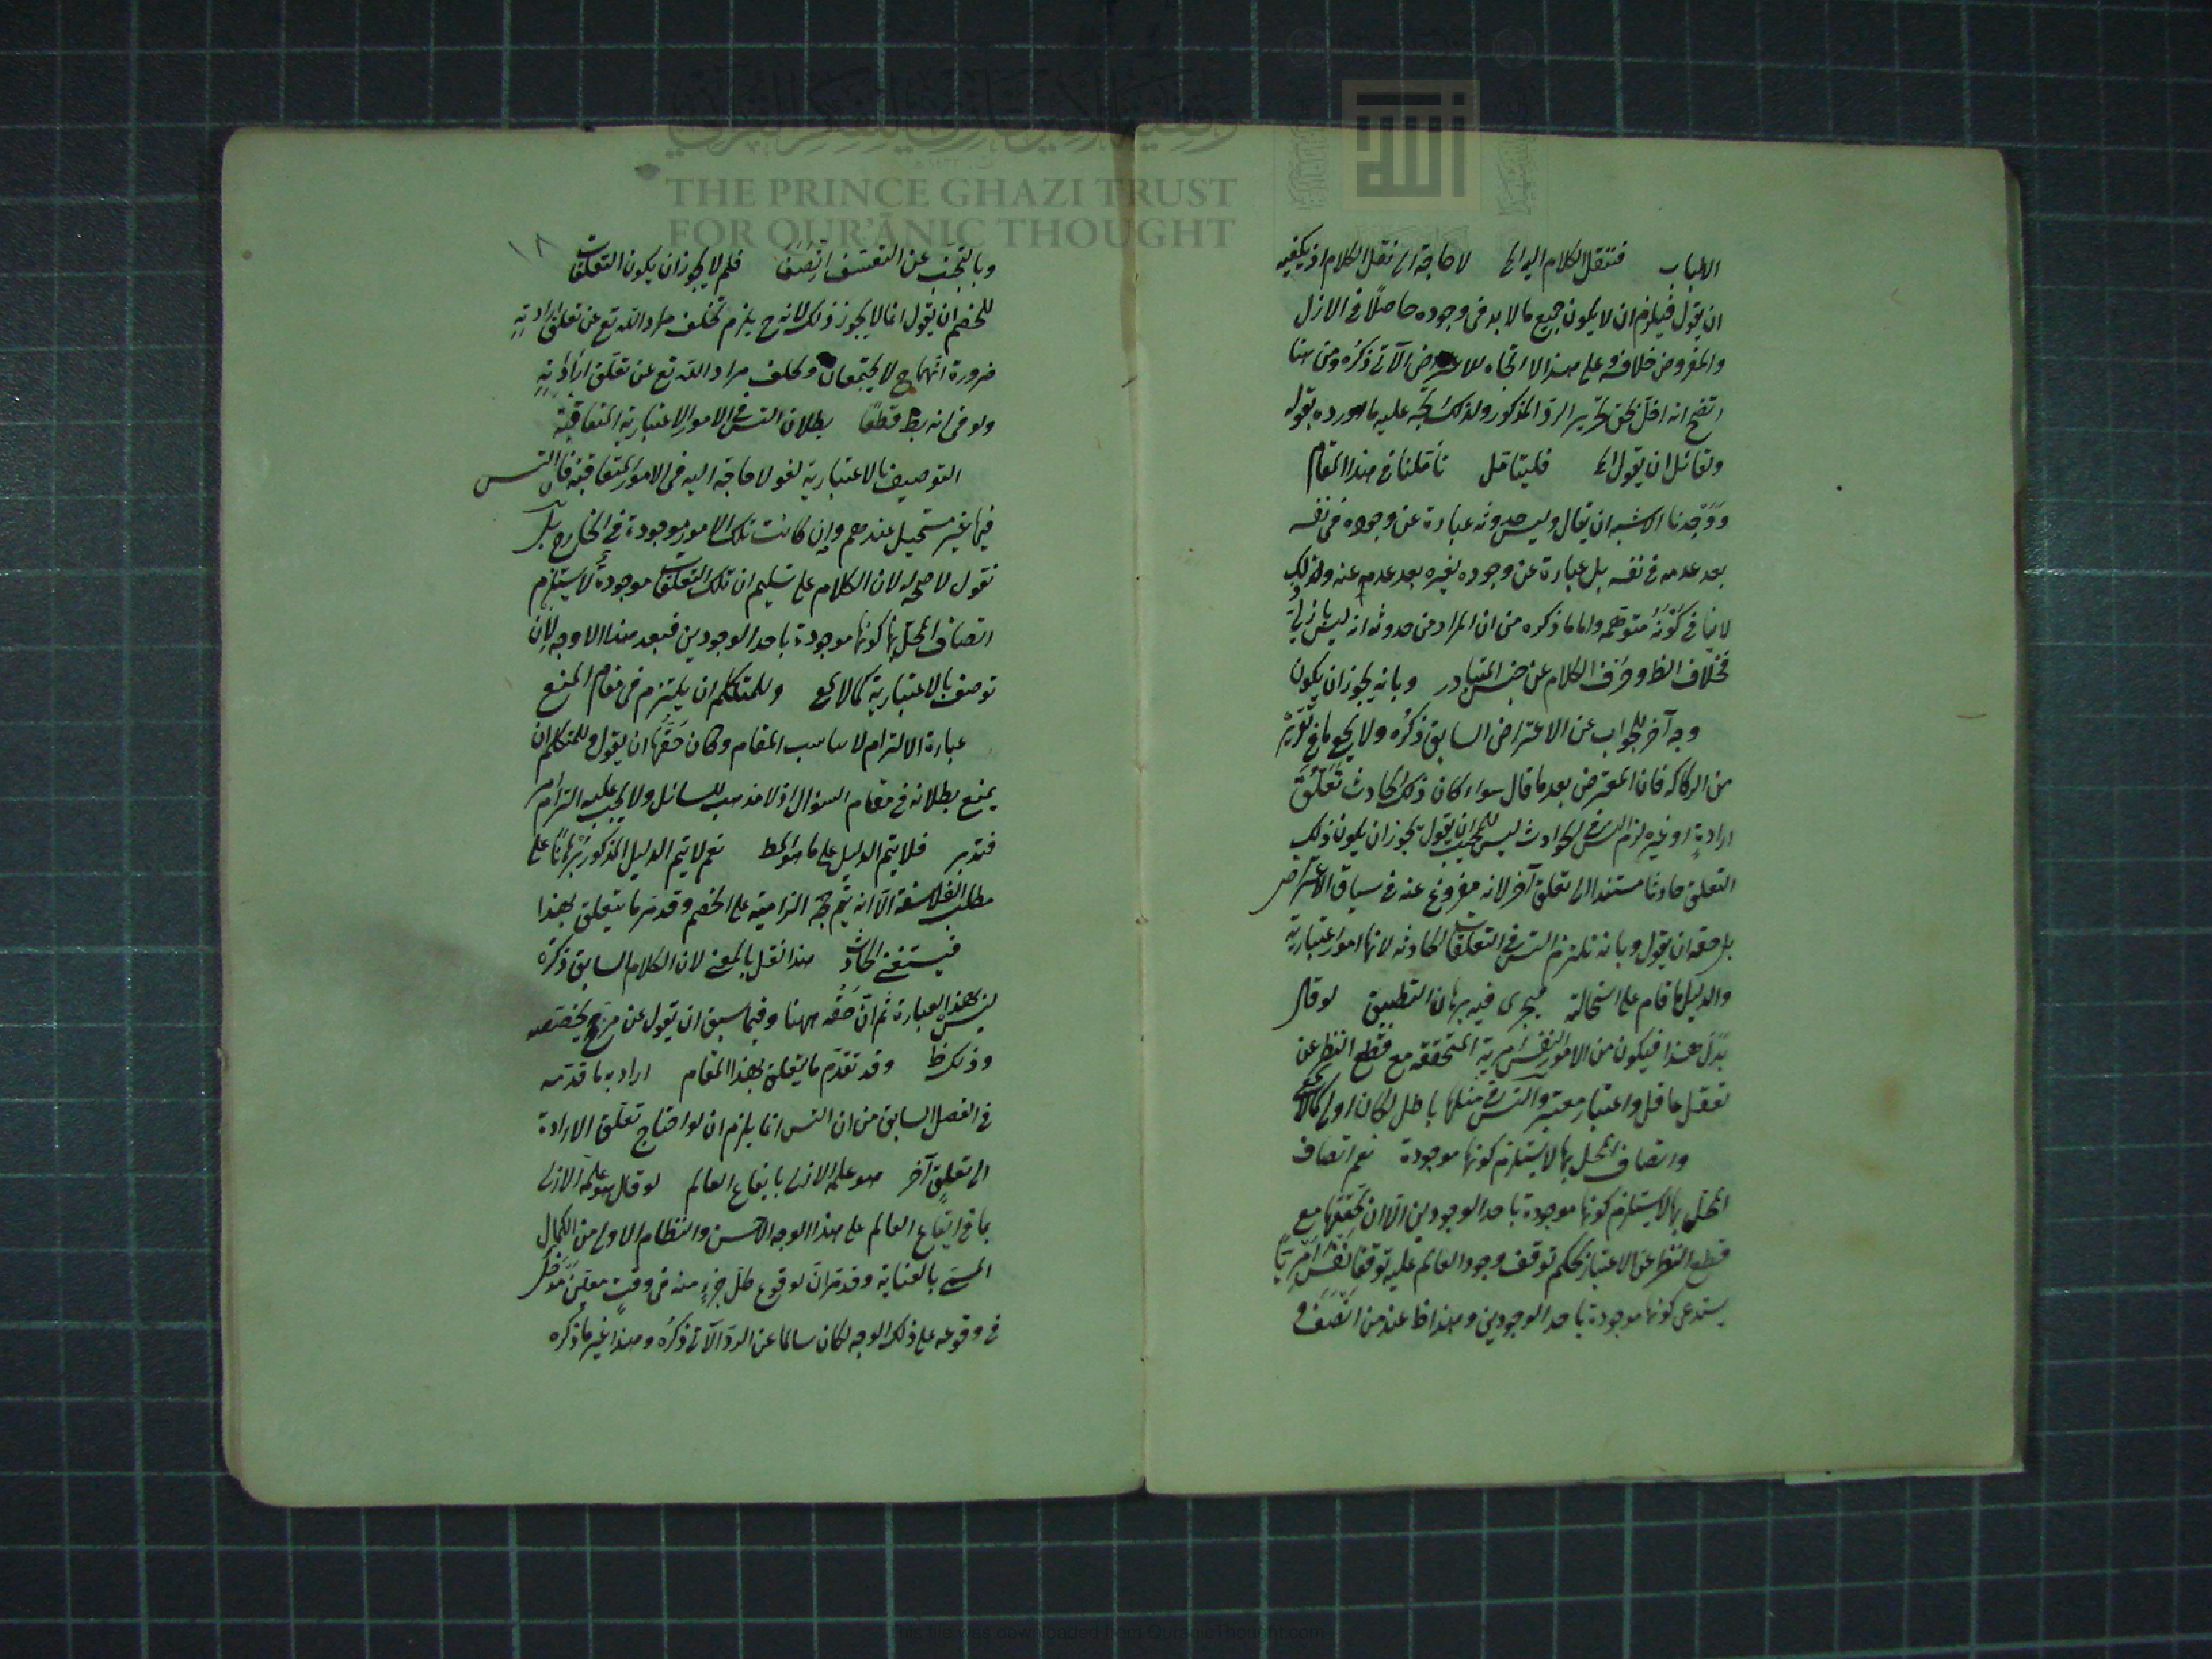 الاطباب فننقل الكلام اليه الخ لا حاجة الى نقل الكلام اذ يكفيه
ان يقول فيلزم ان لا يكون جميع ما لا بد في وجوده حاصلًا في الازل
والمفروض خلافه وعلى هذا لا اتجاه للاعتراض الآتي ذكره ومن هنا
اتضح انه اخل تحرير الرد المذكور ولذلك يتجه عليه ما اورده بقوله
ولقائل ان يقول الخ فليتأمل تأملنا في هذا المقام
ووجدنا الاشبه ان يقال وليس حدوثه عبارة عن وجوده في نفسه
بعد عدمه في نفسه بل عبارة عن وجوده لغيره بعد عدمه عنه وذلك
لا ينافي كونه متوهمه واما ما ذكره من ان المراد من حدوثه انه ليس بازلي
فخلاف الظ وصرف الكلام عن المتبادر وبانه يجوز ان يكون
وجه آخر للجواب عن الاعتراض السابق ذكره ولا يخفى ما في تقريره
من الركاكة فان المعترض بعد ما قال سواء كان ذلك الحادث تعلق
ارادة او غيره لزم التس في الحوادث ليس للمجيب ان يقول يجوز ان يكون ذلك
التعلق حادثا مستندا الى تعلق آخر لانه مفروغ عنه في سياق الاعتراض
بل حقه ان يقول وبانه نلتزم التس في التعلقات الحادثة لانها امور اعتبارية
والدليل ما قام على استحالته فيجري فيه برهان التطبيق لو قال
بدل هذا فيكون من الامور النفس امرية المتحققة مع قطع النظر عن
تعقل عاقل واعتبار معتبر والتس في مثلها باطل لكان اولى كما لا يخفى
واتصاف المحل بها لا يستلزم كونها موجودة نعم اتصاف
المحل بها لا يستلزم كونها موجودة باحد الوجودين الا ان تحققها مع
قطع النظر عن الاعتبار بحكم توقف وجود العالم عليه توقفا نفس امريا
يستدعي كونها موجودة باحد الوجودين وهذا ظ عند من انصف و
١٨
وبالتجنب عن التعسف اتصف فلم لا يجوز ان يكون التعلقات
للخصم ان يقول انما لا يجوز ذلك لانه ح يلزم تخلف مراد الله تع عن تعلق ارادته
ضرورة انهما ح لا يجتمعان وتخلف مراد الله تع عن تعلق ارادته
ولو في انه بط قطعًا بطلان التس في الامور الاعتبارية المتعاقبة
التوصيف بالاعتبارية لغو لا حاجة اليه في الامور المتعاقبة فان التس
فيها غير مستحيل عندهم وان كانت تلك الامور موجودة في الخارج بل
نقول لا صحة له لان الكلام على تسليم ان تلك التعلقات موجودة لا يستلزم
اتصاف المحل بها كونها موجودة باحد الوجودين فبعد هذا لا وجه لان
توصف بالاعتبارية كما لا يخ وللمتكلم ان يلتزم في مقام المنع
عبارة الالتزام لا يناسب المقام وكان حقها ان يقول وللمتكلم ان
يمنع بطلانه في مقام السؤال اذ لا مذهب للسائل ولا يجب عليه التزام امر
فتدبر فلا يتم الدليل على ما هو المط نعم لا يتم الدليل المذكور برهانًا على
مطلب الفلاسفة الا انه يتم حجة الزامية على الخصم وقد مر ما يتعلق بهذا
فيستغني الحادث هذا نقل بالمعنى لان الكلام السابق ذكره
ليس بهذا العبارة ثم ان حقه ههنا وفيما سبق ان تقول عن مرجح يخصصه
وذلك ظ وقد تقدم ما يتعلق بهذا المقام اراد به ما قدمه
في الفصل السابق من ان التس انما يلزم ان لو احتاج تعلق الارادة
الى تعلق آخر هو علمه الازلي بايقاع العالم لو قال هو علمه الازلي
بما في ايقاع العالم على هذا الوجه الاحسن والنظام الاولى من الكمال
المسمى بالعناية وقد مر ان لوقوع كل جزء منه في وقت معين مدخل
في وقوعه على ذلك الوجه لكان سالما عن الرد الآتي ذكره وهذا غير ما ذكره
THE PRINCE GHAZI TRUST
FOR QUR'ĀNIC THOUGHT
This file was downloaded from QuranicThought.com